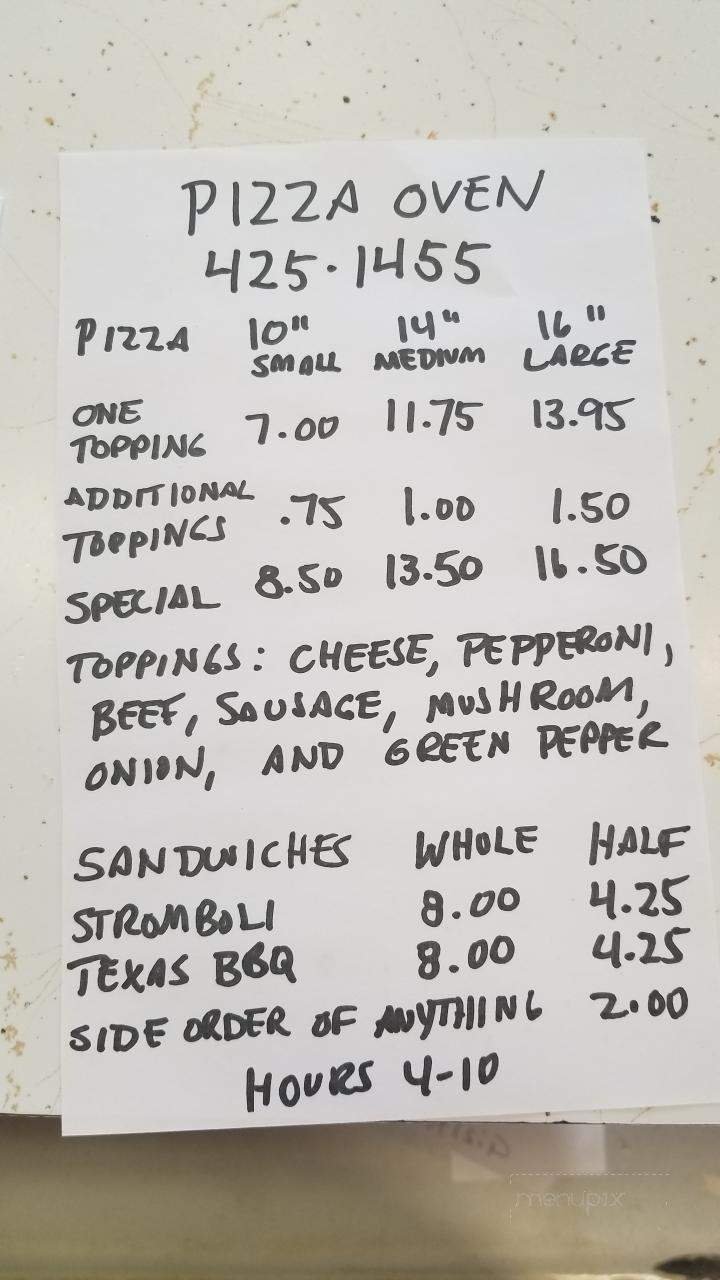 PIZZA OVEN
425·1455
PIZZA 10" 14" 16"
SMALL MEDIUM LARGE
ONE TOPPING 7.00 11.75 13.95
ADDITIONAL TOPPINGS .75 1.00 1.50
SPECIAL 8.50 13.50 16.50
TOPPINGS: CHEESE, PEPPERONI,
BEEF, SAUSAGE, MUSHROOM,
ONION, AND GREEN PEPPER
SANDWICHES WHOLE HALF
STROMBOLI 8.00 4.25
TEXAS BBQ 8.00 4.25
SIDE ORDER OF ANYTHING 2.00
HOURS 4-10
menupix